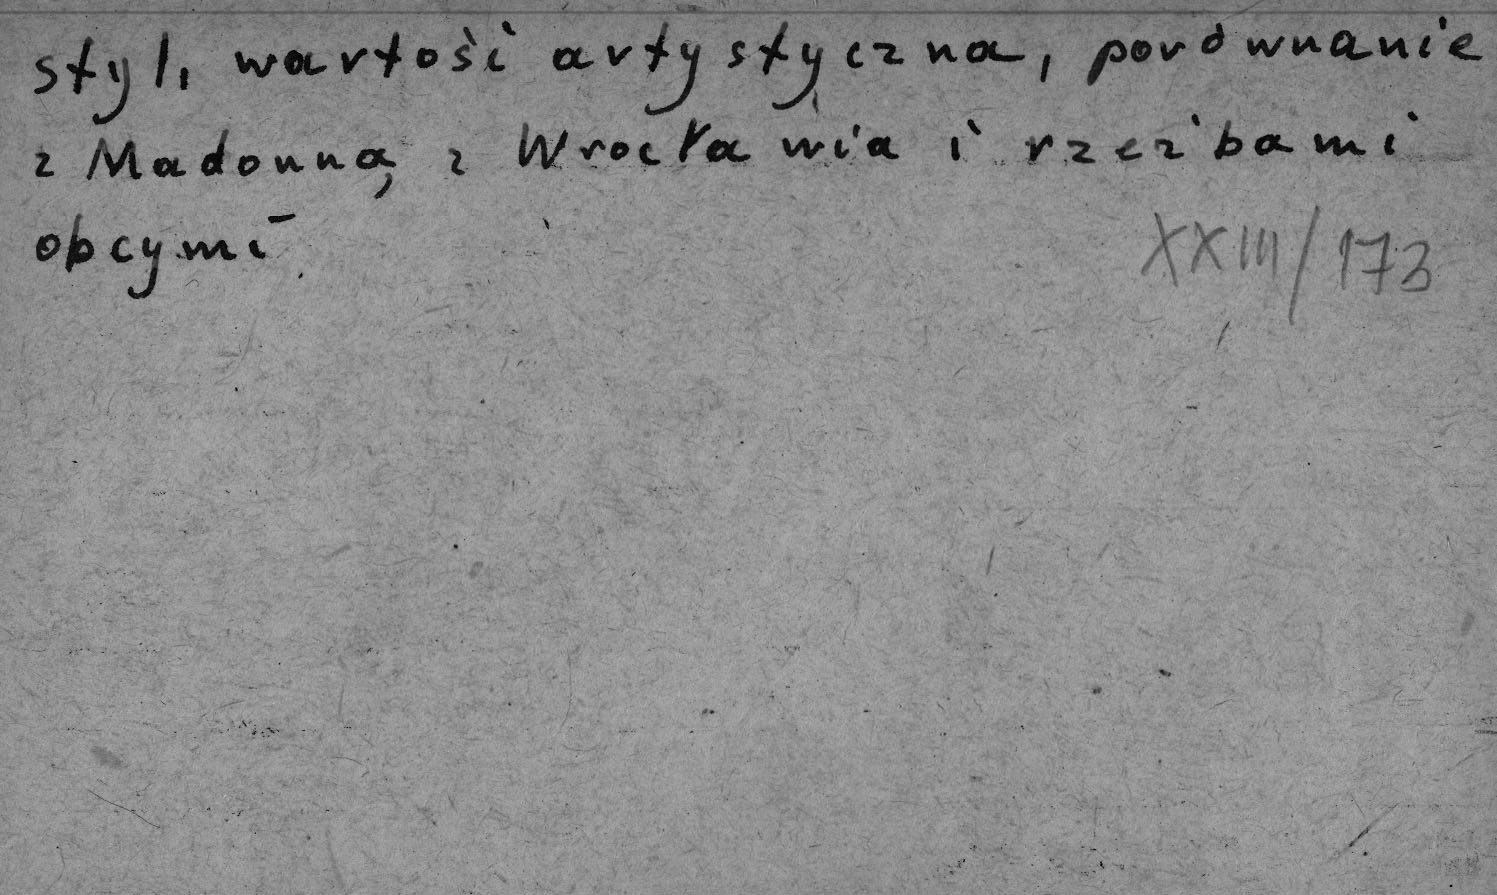 styl, wartośi artystyczna, porównanie
z Madonną z Wrocławia i rzeźbami
obcymi
XXIII/173